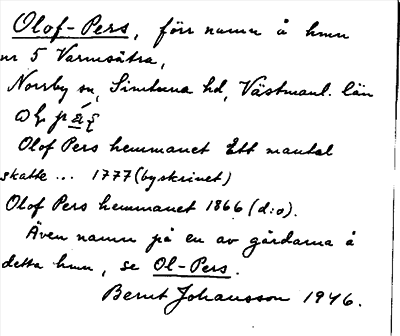 Olof-Pers, förr namn å hmn
nr 5 Varmsätra,
Norrby sn, Simtuna hd, Västmanl. län
Olof Pers hemmanet Ett mantal
skatte ... 1777 (byskrinet)
Olof Pers hemmanet 1866 (d:o).
Även namn på en av gårdarna å
detta hmn, se Ol-Pers.
Bernt Johansson 1946.